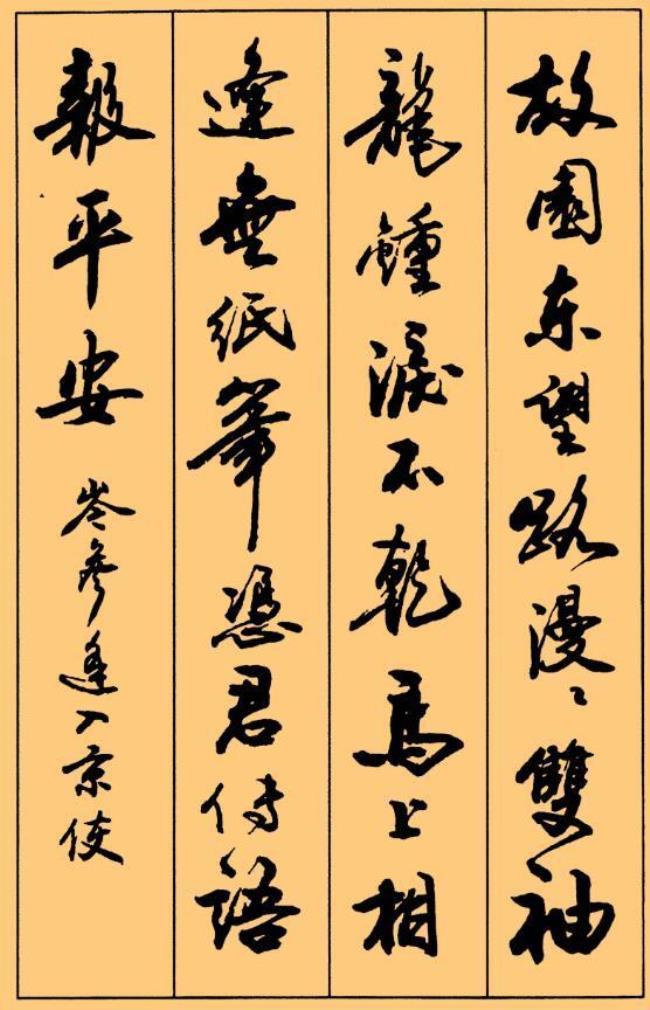 故園东望路漫〻雙袖
龍鍾淚不乾馬上相
逢無紙筆憑君傳語
報平安 岑參逢入京使